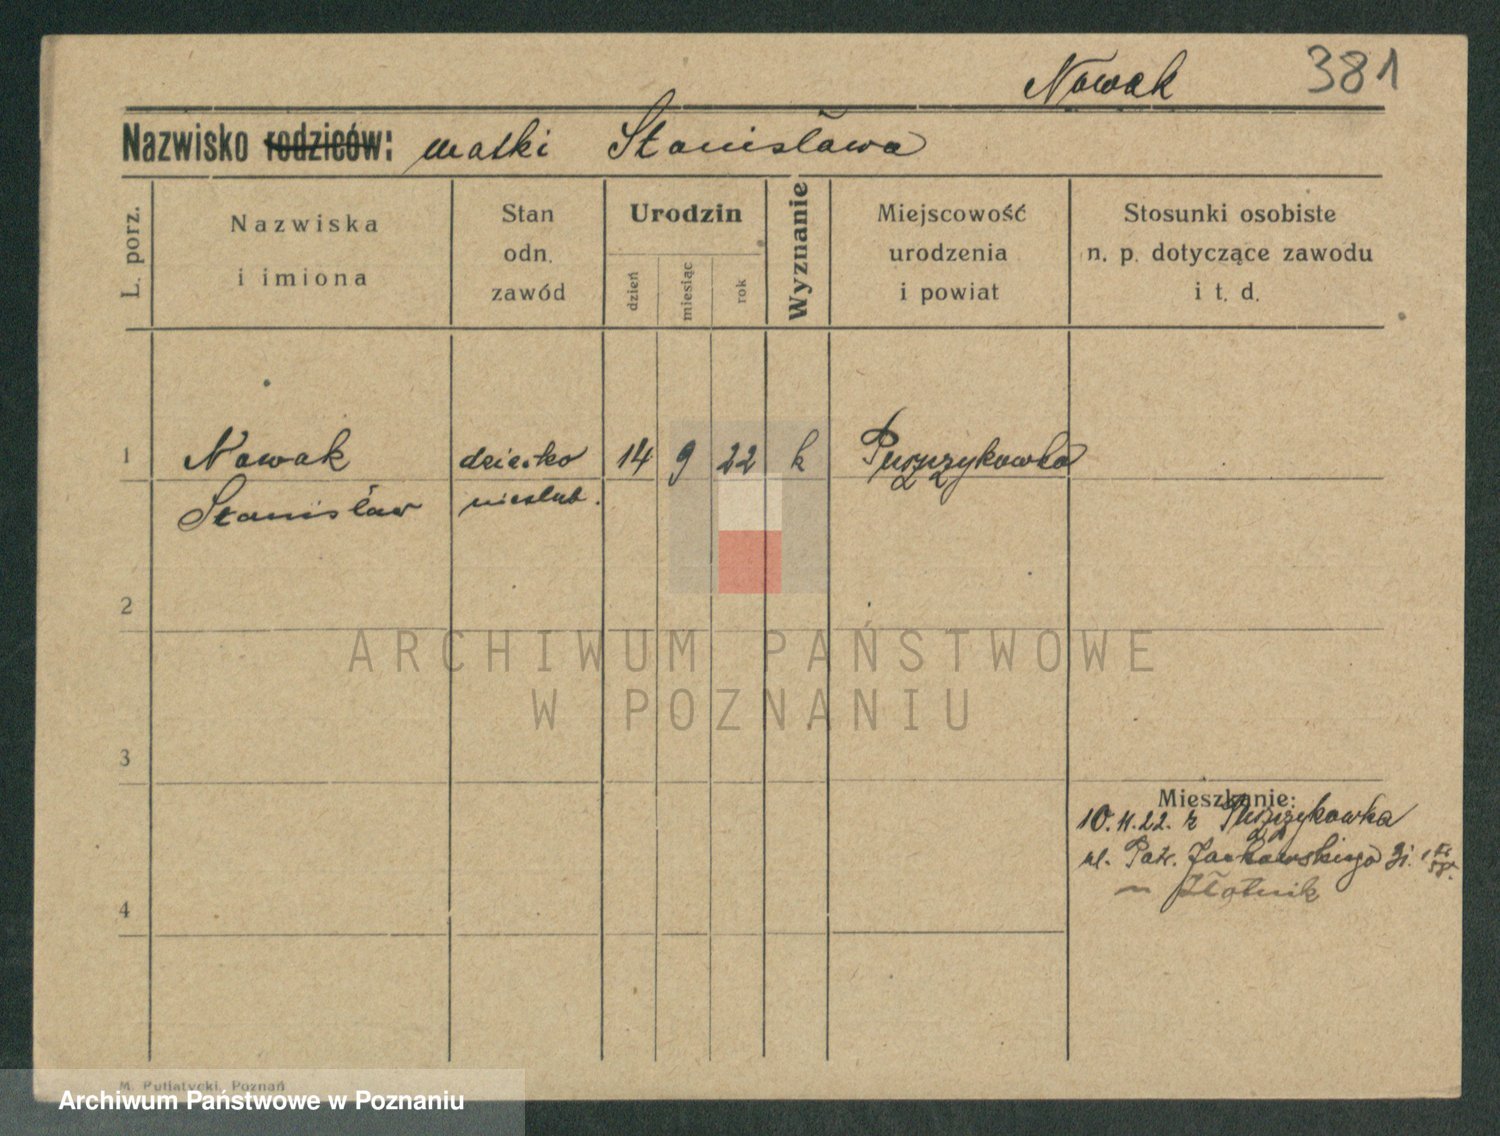 Nowak 381
Nazwisko rodziców: matki Stanisława
L. porz.
Nazwiska
i imiona
Stan
odn.
zawód
Urodzin
dzień
miesiąc
rok
Wyznanie
Miejscowość
urodzenia
i powiat
Stosunki osobiste
n. p. dotyczące zawodu
i t. d.
1 Nowak dziecko 14 9 22 k Puszczykówko
Stanisław nieślub.
2
ARCHIWUM PAŃSTWOWE
W POZNANIU
3
Mieszkanie:
10. 11. 22. z
ul. Jackowskiego
4
M. Putiatycki, Poznań
Archiwum Państwowe w Poznaniu